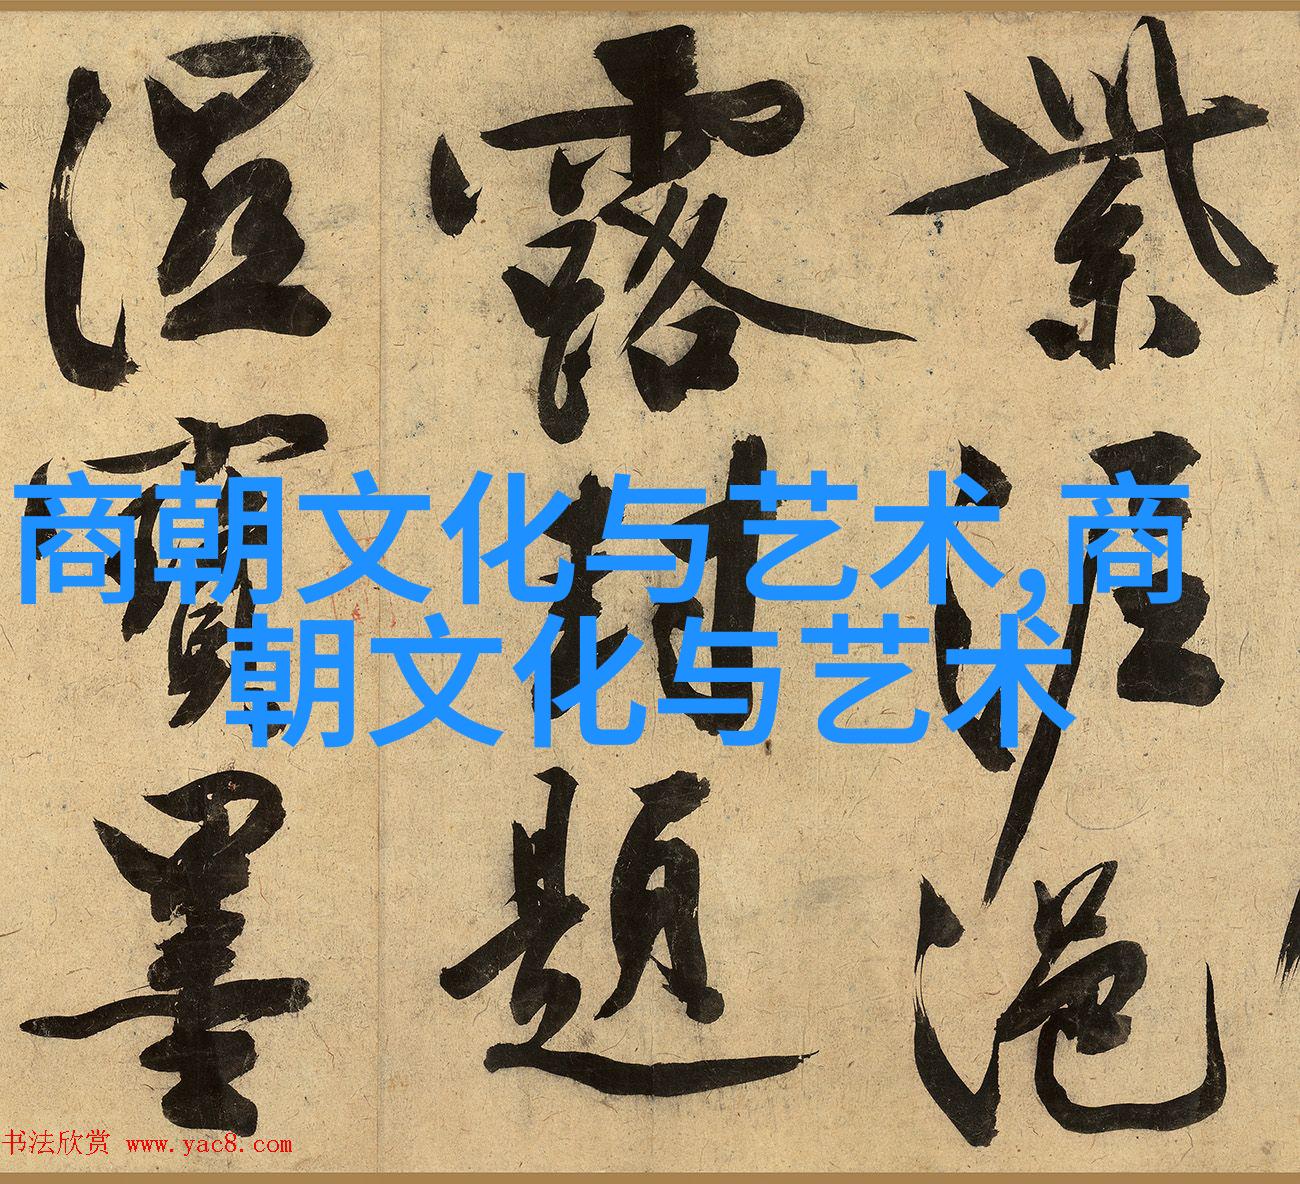 商朝文化与艺术,商
朝文化与艺术
紫泥浥
露封題
濕寶墨
书法欣赏 www.yac8.com